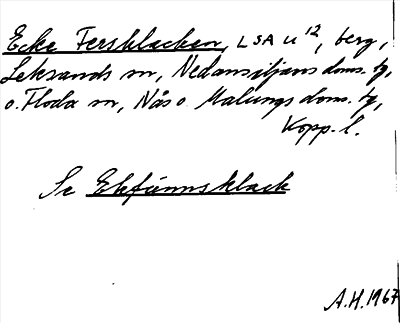 Ecke Fersklacken, LSA U 12, berg,
Leksands sn, Nedansiljans doms. tg,
o. Floda sn, Nås o Malungs doms. tg,
Kopp. l.
Se Ekfännsklack
A.H. 1967